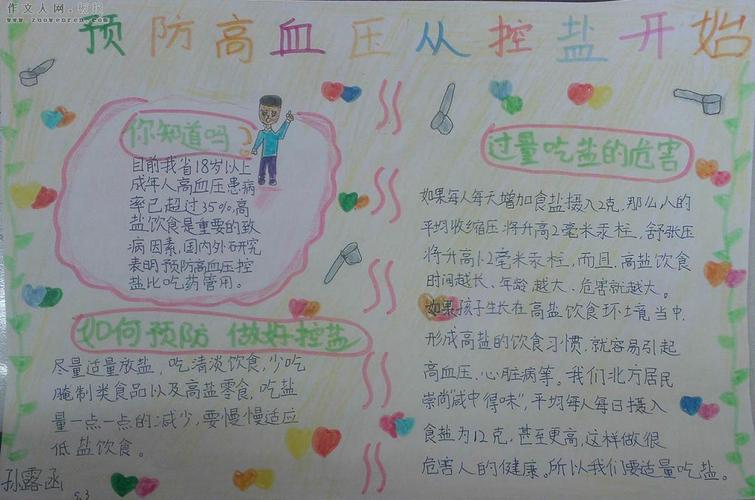 作文人网
www.zuowenren.com
预防高血压从控盐开始
你知道吗
目前我省18岁以上
成年人高血压患病
率已超过35%,高
盐饮食是重要的致
病因素,国内外研究
表明预防高血压控
盐比吃药管用。
如何预防 做好控盐
尽量适量放盐,吃清淡饮食,少吃
腌制类食品以及高盐零食,吃盐
量一点一点的减少,要慢慢适应
低盐饮食。
孙露函
5.3
过量吃盐的危害
如果每人每天增加食盐摄入2克,那么人的
平均收缩压将升高2毫米汞柱,舒张压
将升高1.2毫米汞柱,而且,高盐饮食
时间越长、年龄越大、危害就越大。
如果孩子生长在高盐饮食环境当中,
形成高盐的饮食习惯,就容易引起
高血压、心脏病等。我们北方居民
崇尚"咸中得味",平均每人每日摄入
食盐为12克,甚至更高,这样做很
危害人的健康。所以我们要适量吃盐。